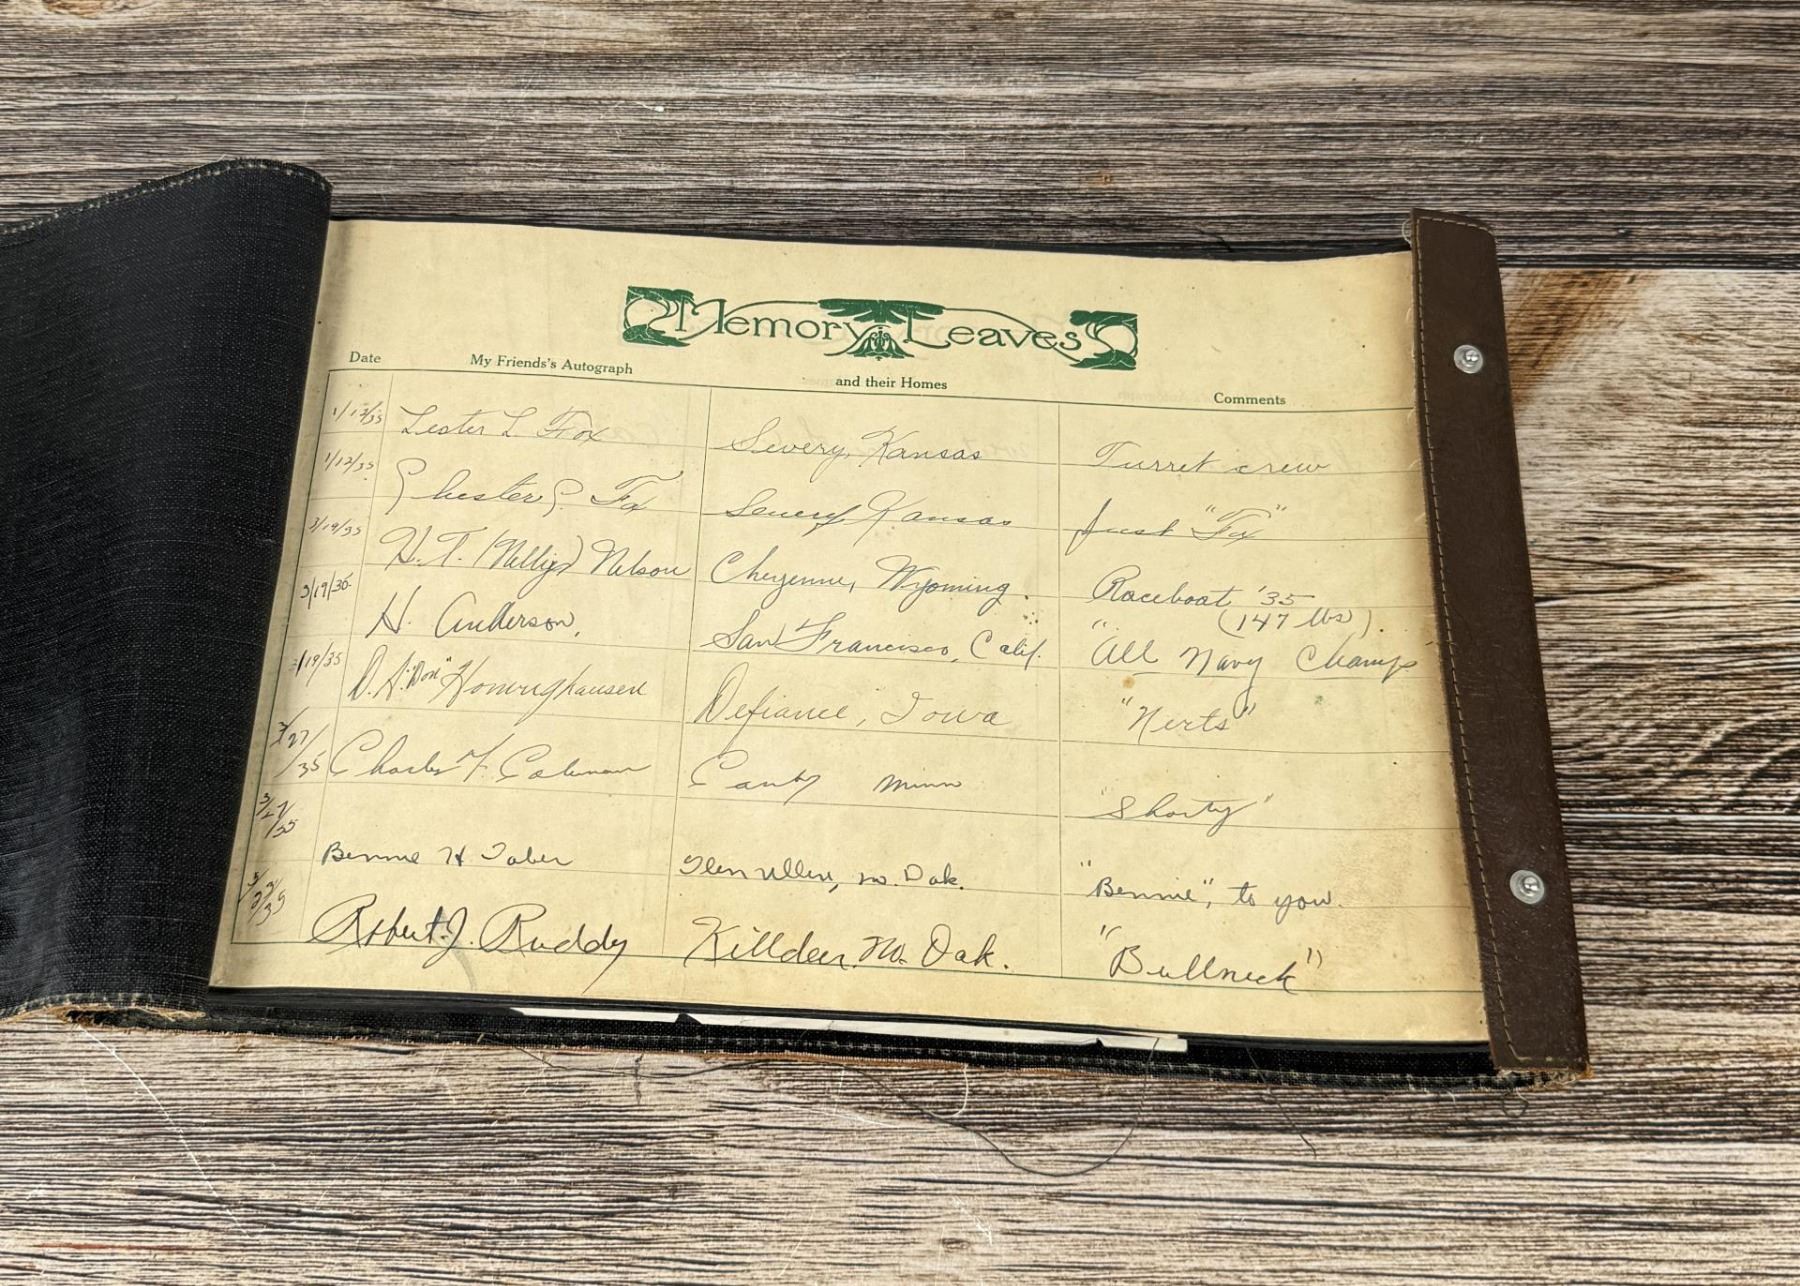 Memory Leaves
Date My Friends's Autograph and their Homes Comments
1/12/35 Lester L Fox Severy, Kansas Turret crew
1/12/35 Chester C. Fox Severy Kansas Just "Fox"
3/19/35 H. T. (Nellie) Nelson Cheyenne, Wyoming. Raceboat '35
(147 lbs).
3/19/35 H. Anderson, San Francisco, Calif. "All Navy Champs
3/19/35 D. H. "Don" Defiance, Iowa "Nerts"
3/27/35 Charles F. Coleman Canby Minn "Shorty"
3/27/35 Bennie H Taber Glen Ullin, no. Dak. "Bennie", to you.
Robert J. Ruddy Killdeer, No. Dak. "Bullneck"